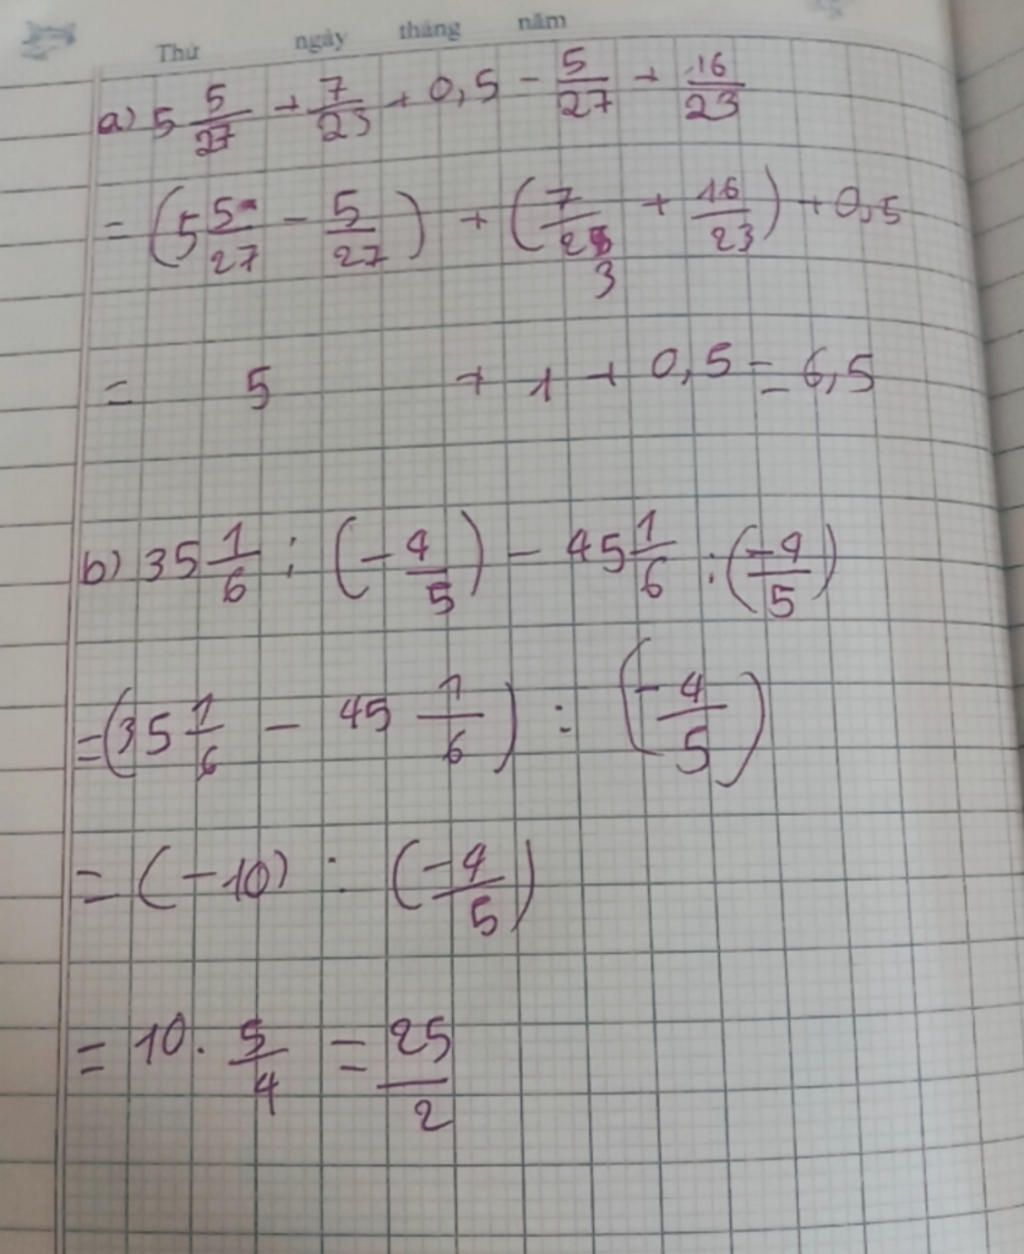 Thứ ngày tháng năm
a) 5 5/27 + 7/23 + 0,5 - 5/27 + 16/23
= (5 5/27 - 5/27) + (7/23 + 16/23) + 0,5
= 5 + 1 + 0,5 = 6,5
b) 35 1/6 : (-4/5) - 45 1/6 : (-4/5)
= (35 1/6 - 45 1/6) : (-4/5)
= (-10) : (-4/5)
= 10 . 5/4 = 25/2